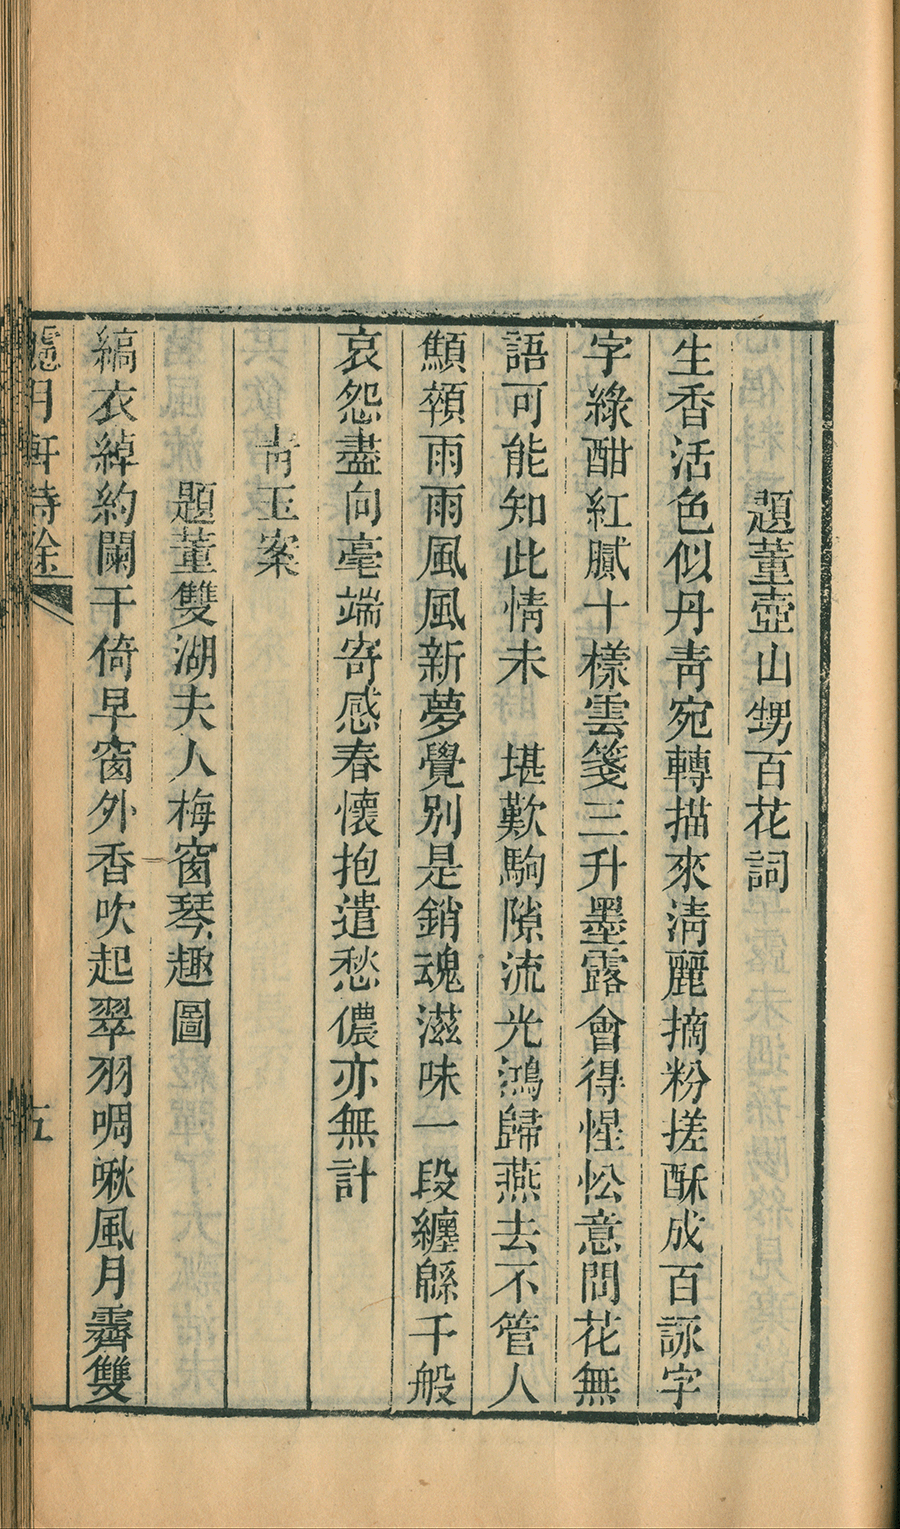 題董壺山甥百花詞
生香活色似丹靑宛轉描來淸麗摘粉搓酥成百詠字
字綠酣紅膩十樣雲箋三升墨露會得惺忪意問花無
語可能知此情未　堪歎駒隙流光鴻歸燕去不管人
顦顇雨雨風風新夢覺別是銷魂滋味一段纏緜千般
哀怨盡向毫端寄感春懷抱遣愁儂亦無計
靑玉案
題董雙湖夫人梅窗琴趣圖
縞衣綽約闌干倚早窗外香吹起翠羽啁啾風月霽雙
月軒詩餘
五